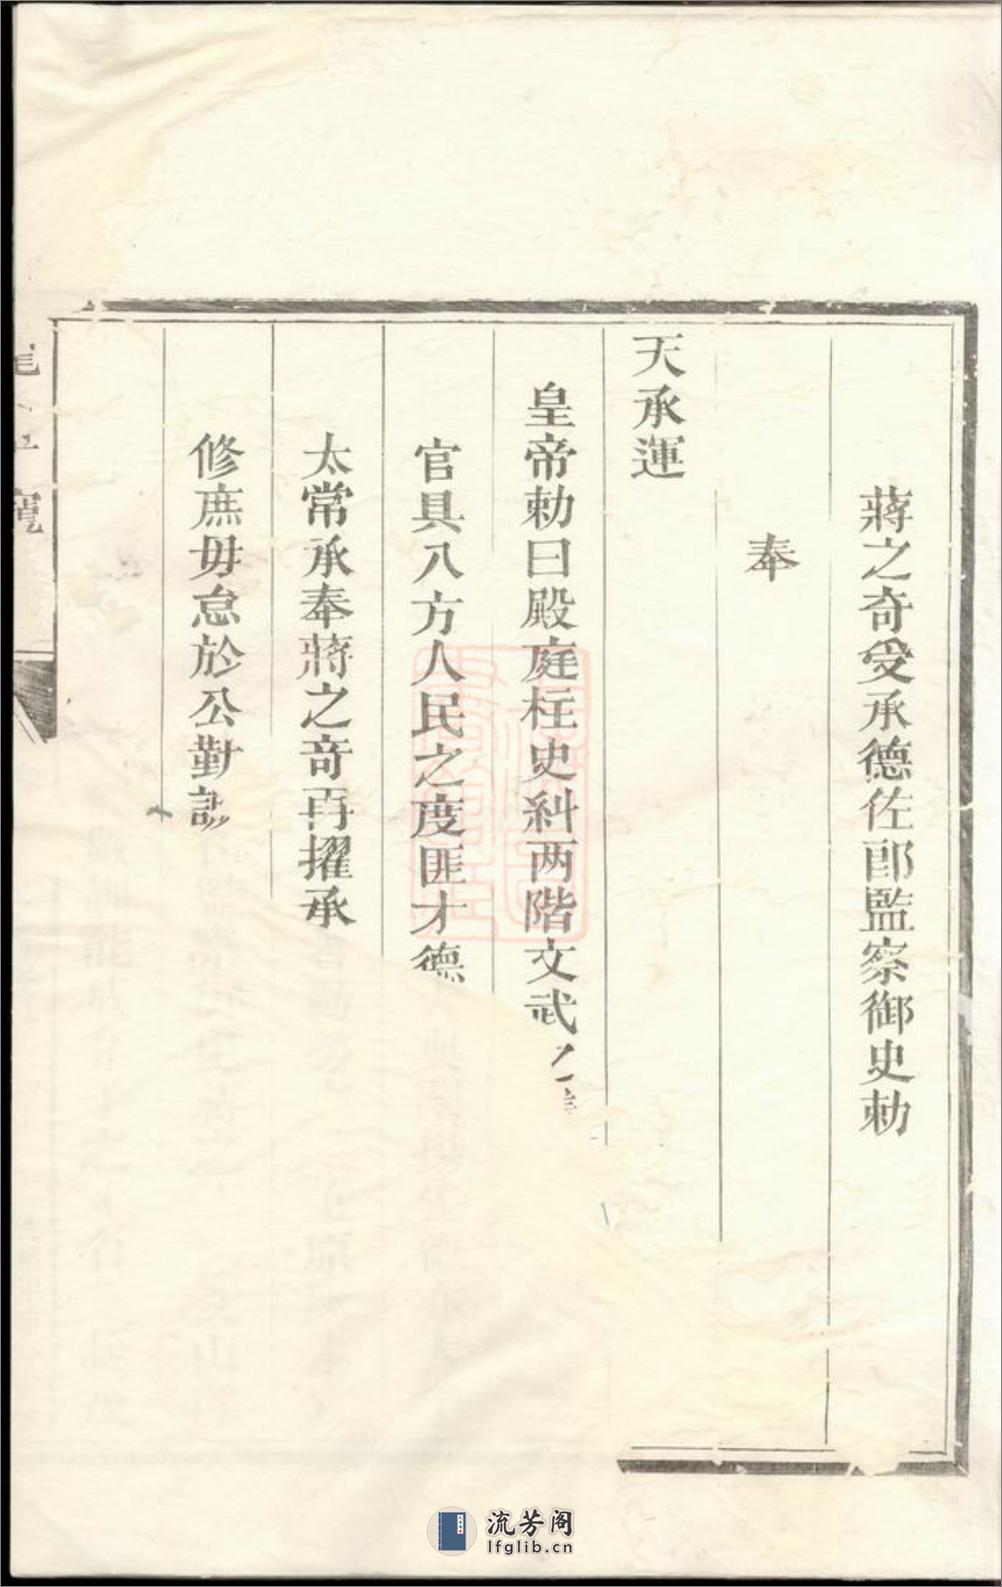 蔣之奇受承德佐郎監察御史勅
奉
天承運
皇帝勅曰殿庭柱史糾两階文武之
官具八方人民之度匪才德
太常承奉蔣之奇再擢承
修庶毋怠於公勤
流芳阁
lfglib.cn